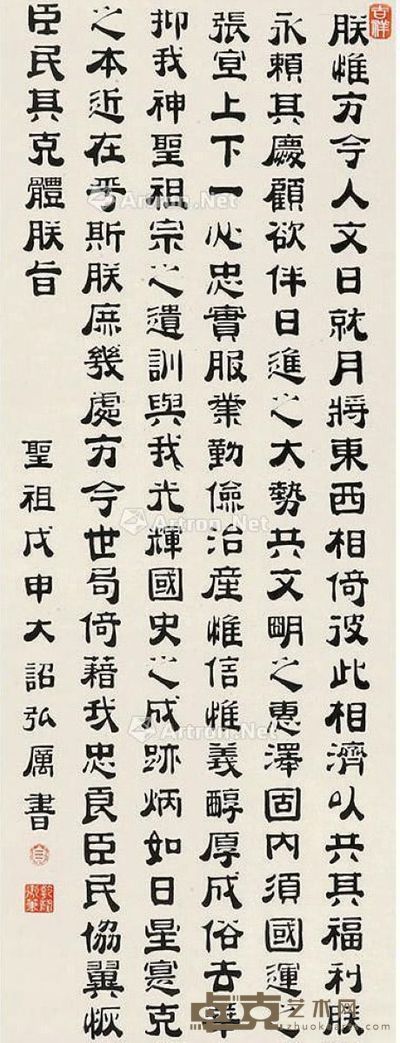 吉祥
朕惟方今人文日就月將東西相倚彼此相濟以共其福利朕
永賴其慶顧欲伴日進之大勢共文明之惠澤固內須國運之
張宜上下一心忠實服業勤儉治產惟信惟義醇厚成俗去華
抑我神聖祖宗之遺訓與我光輝國史之成跡炳如日星寔克
之本近在乎斯朕庶幾處方今世局倚藉我忠良臣民協翼恢
臣民其克體朕旨
聖祖戊申大詔弘厲書
Artron.Net
Artron.Net
Artron.Net
Artron.Net
卓克艺术网
www.zhuokearts.com